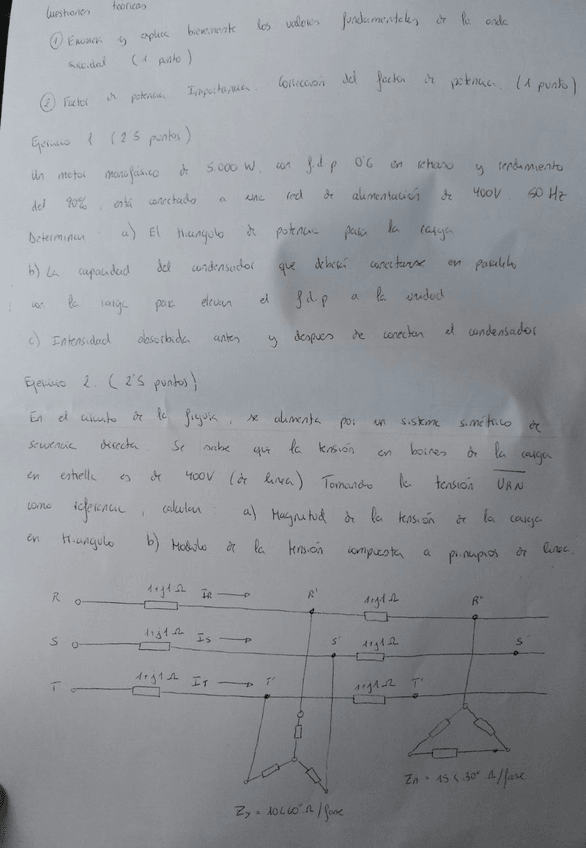 Cuestiones teóricas
① Enuncia y explica brevemente los valores fundamentales de la onda
senoidal (1 punto)
② Factor de potencia. Importancia. Corrección del factor de potencia. (1 punto)
Ejercicio 1 (2'5 puntos)
Un motor monofásico de 5.000 W, con f.d.p 0'6 en retraso y rendimiento
del 90%, está conectado a una red de alimentación de 400V 50 Hz
Determinar a) El triangulo de potencia para la carga
b) La capacidad del condensador que deberá conectarse en paralelo
con la carga para elevar el f.d.p a la unidad
c) Intensidad absorbida antes y despues de conectar el condensador
Ejercicio 2. (2'5 puntos)
En el circuito de la figura, se alimenta por un sistema simétrico de
secuencia directa. Se sabe que la tensión en bornes de la carga
en estrella es de 400V (de linea) Tomando la tensión URN
como referencia, calcular: a) Magnitud de la tensión de la carga
en triangulo b) Modulo de la tensión compuesta a principios de linea.
R 1+j1 Ω IR R' 1+j1 Ω R"
S 1+j1 Ω IS S' 1+j1 Ω S"
T 1+j1 Ω IT T' 1+j1 Ω T"
ZΔ = 15∠30° Ω/fase
ZY = 10∠60° Ω/fase